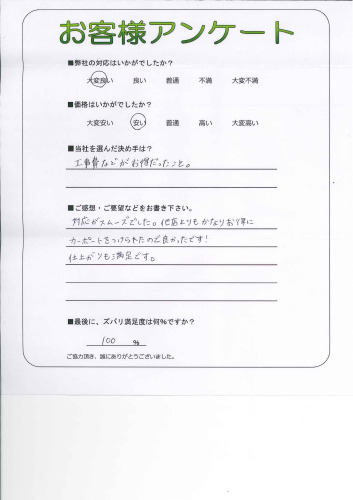 お客様アンケート
■弊社の対応はいかがでしたか?
大変良い 良い 普通 不満 大変不満
■価格はいかがでしたか?
大変安い 安い 普通 高い 大変高い
■当社を選んだ決め手は?
工事費などがお得だったこと。
■ご感想・ご要望などをお書き下さい。
対応がスムーズでした。他店よりもかなりお得に
カーポートをつけられたので良かったです!
仕上がりも満足です。
■最後に、ズバリ満足度は何%ですか?
100 %
ご協力頂き、誠にありがとうございました。